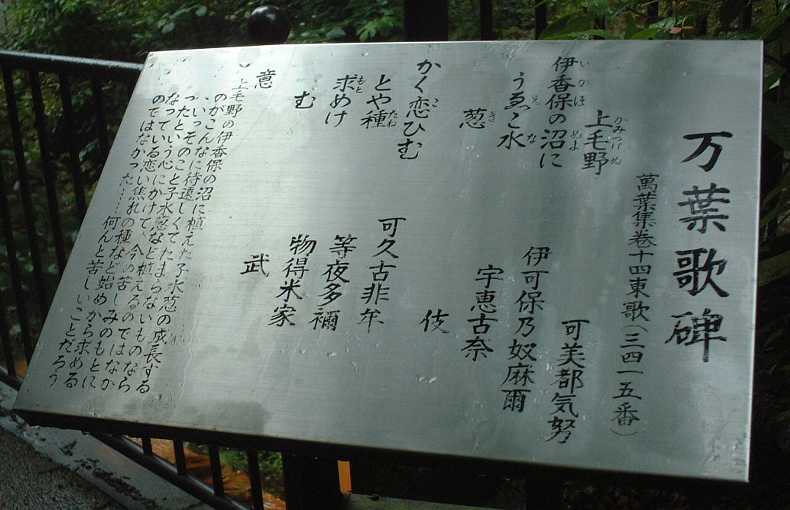 万葉歌碑
萬葉集巻十四東歌(三四一五番)
上毛野
伊香保の沼に
うゑこ水
葱
かく恋ひむ
とや種
求めけ
む
可美都気努
伊可保乃奴麻爾
宇恵古奈
伎
可久古非牟
等夜多禰
物得米家
武
意
上毛野の伊香保の沼に植えた子水葱の成長する
のがこんなに待遠しくてたまらないものなら
いっそのこと子水葱など植えるのではなか
ったという心にかけて、今の苦しみのもとに
なっている恋い焦れの種など始めから求める
のではなかった……何んと苦しいことだろう